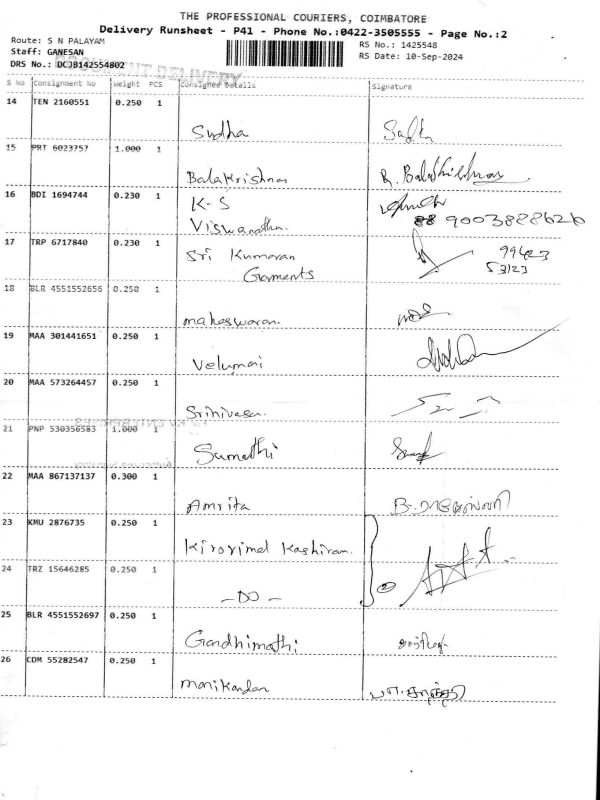 THE PROFESSIONAL COURIERS, COIMBATORE
Delivery Runsheet - P41 - Phone No.:0422-3505555 - Page No.:2
Route: S N PALAYAM
RS No.: 1425548
Staff: GANESAN
RS Date: 10-Sep-2024
DRS No.: DCJB142554802
DOCUMENT DELIVERY
S No Consignment No Weight PCS Consignee Details Signature
14 TEN 2160551 0.250 1
Sudha
15 PRT 6023757 1.000 1
Balakrishnan
16 BDI 1694744 0.230 1 K-S
Viswanathan. 88 9003888626
17 TRP 6717840 0.230 1 Sri Kumaran 99423
Garments 53123
18 BLR 4551552656 0.250 1
maheswaran.
19 MAA 301441651 0.250 1
Velumai
20 MAA 573264457 0.250 1
Srinivasa.
21 PNP 530356583 1.000 1
Sumathi
22 MAA 867137137 0.300 1
Amrita
23 KMU 2876735 0.250 1
Kirorimal Kashiram.
24 TRZ 15646285 0.250 1
-DO-
25 BLR 4551552697 0.250 1
Gandhimathi
26 CDM 55282547 0.250 1
manikandan